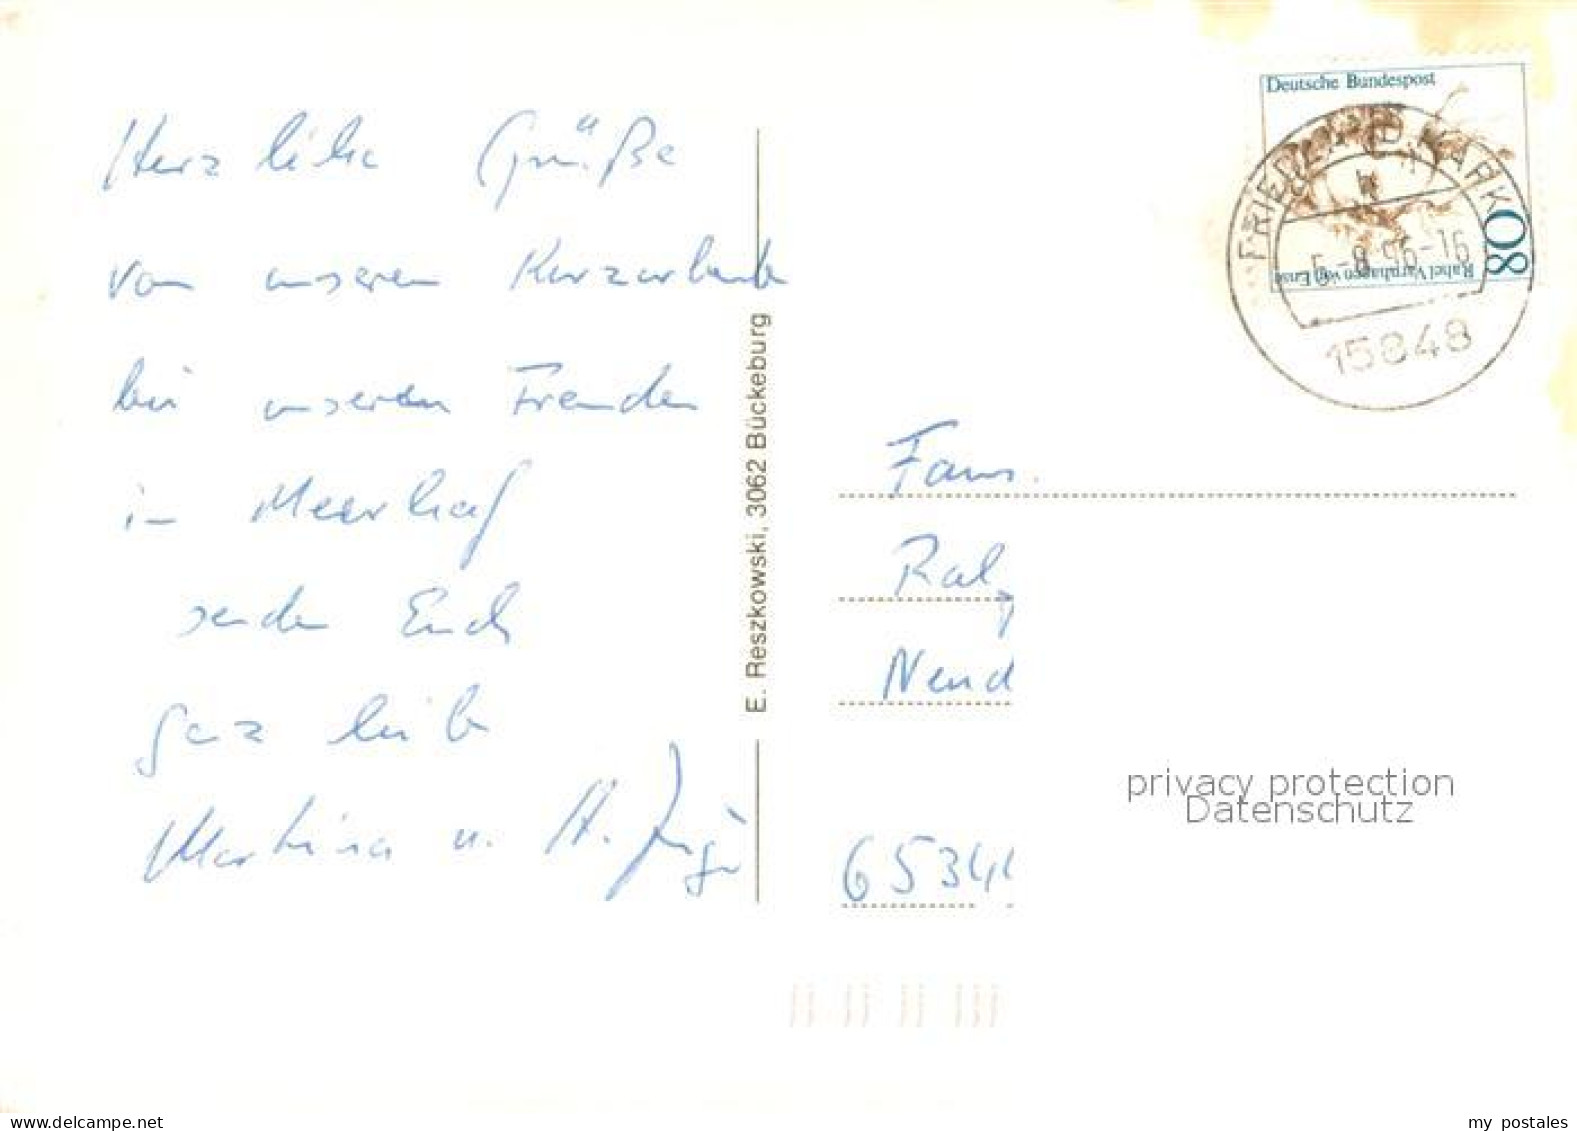 Herzliche Grüße
von unserem Kurzurlaub
bei unseren Freunden
in Meerhof
senden Euch
ganz lieb
Martina u. H.
E. Reszkowski, 3062 Bückeburg
Deutsche Bundespost
80
Rahel Varnhagen von Ense
FRIEDLAND, MARK
b
-8.96-16
15848
Fam.
Ral
Neud
6534
privacy protection
Datenschutz
delcampe.net
my postales